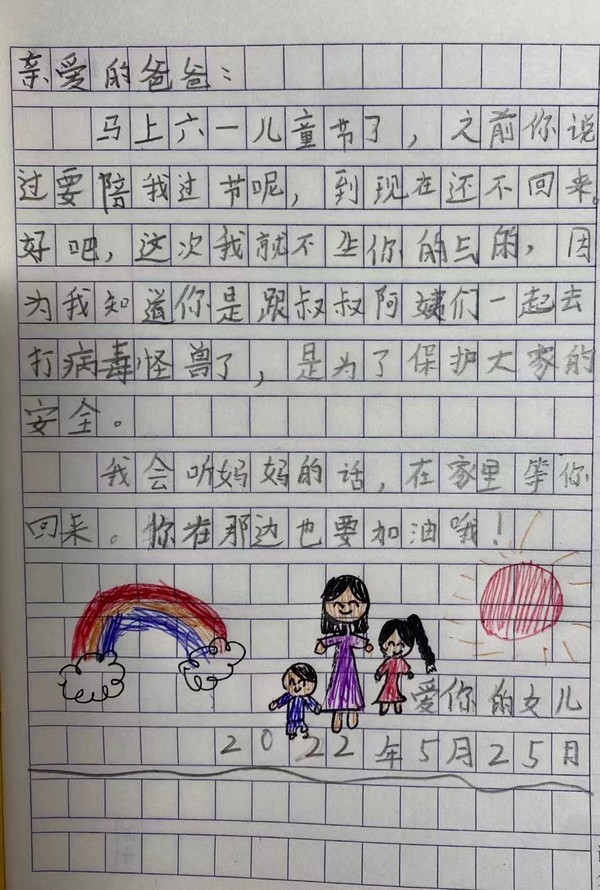 亲爱的爸爸：
马上六一儿童节了，之前你说
过要陪我过节呢，到现在还不回来。
好吧，这次我就不生你的气的，因
为我知道你是跟叔叔阿姨们一起去
打病毒怪兽了，是为了保护大家的
安全。
我会听妈妈的话，在家里等你
回来。你在那边也要加油哦！
爱你的女儿
2022年5月25日